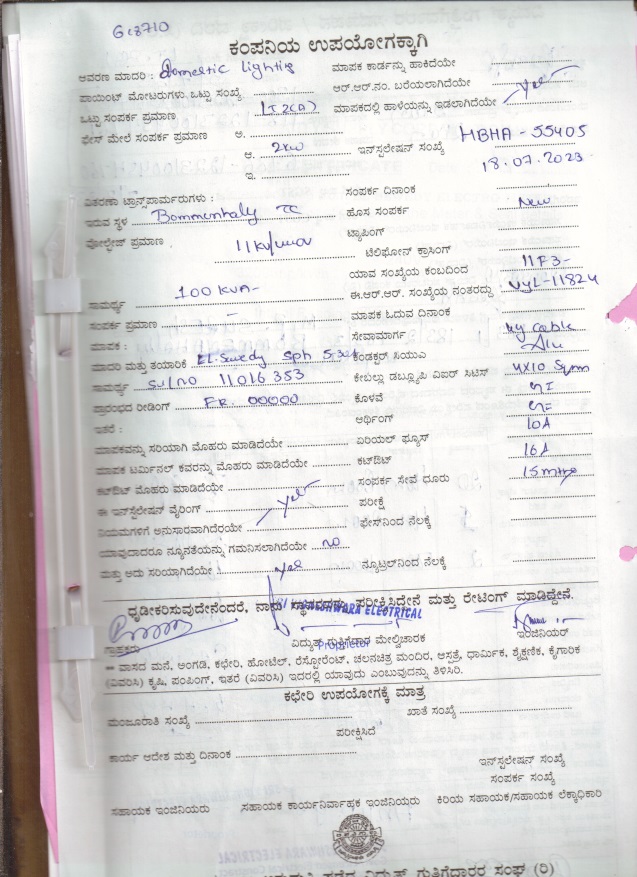 G68710
ಕಂಪನಿಯ ಉಪಯೋಗಕ್ಕಾಗಿ
ಆವರಣ ಮಾದರಿ : Domestic Lighting ಮಾಪಕ ಕಾರ್ಡನ್ನು ಹಾಕಿದೆಯೇ
ಪಾಯಿಂಟ್ ಮೋಟರುಗಳು ಒಟ್ಟು ಸಂಖ್ಯೆ ಆರ್.ಆರ್.ನಂ. ಬರೆಯಲಾಗಿದೆಯೇ
ಒಟ್ಟು ಸಂಪರ್ಕ ಪ್ರಮಾಣ LT2(A) ಮಾಪಕದಲ್ಲಿ ಹಾಳೆಯನ್ನು ಇಡಲಾಗಿದೆಯೇ yes
ಫೇಸ್ ಮೇಲೆ ಸಂಪರ್ಕ ಪ್ರಮಾಣ ಅ.
ಆ. 2KW ಇನ್‌ಸ್ಪಲೇಷನ್ ಸಂಖ್ಯೆ HBHA-55405
ಇ. 18.07.2023
ವಿತರಣಾ ಟ್ರಾನ್ಸ್‌ಪಾರ್ಮರುಗಳು : ಸಂಪರ್ಕ ದಿನಾಂಕ
ಇರುವ ಸ್ಥಳ Bommenhaly TC ಹೊಸ ಸಂಪರ್ಕ New
ವೋಲ್ಟೇಜ್ ಪ್ರಮಾಣ 11KV/ ಟ್ಯಾಪಿಂಗ್
ಟೆಲಿಫೋನ್ ಕ್ರಾಸಿಂಗ್
ಯಾವ ಸಂಖ್ಯೆಯ ಕಂಬದಿಂದ 11F3-
ಸಾಮರ್ಥ್ಯ 100 KVA- ಈ.ಆರ್.ಆರ್. ಸಂಖ್ಯೆಯ ನಂತರದ್ದು VYL-11824
ಸಂಪರ್ಕ ಪ್ರಮಾಣ - ಮಾಪಕ ಓದುವ ದಿನಾಂಕ
ಮಾಪಕ : ಸೇವಾಮಾರ್ಗ cable
ಮಾದರಿ ಮತ್ತು ತಯಾರಿಕೆ El.Swedy Sph ಕಂಡಕ್ಟರ್ ಸಿಯುಎ Alu
ಸಾಮರ್ಥ್ಯ Sl/no 11016353 ಕೇಬಲ್ಲು ಡಬ್ಲ್ಯೂಪಿ ವಿಐರ್ ಸಿಟಿಸ್ 4X10 Sqmm
ಪ್ರಾರಂಭದ ರೀಡಿಂಗ್ FR. 00000 ಕೊಳವೆ GI
ಇತರೆ : ಆರ್ಥಿಂಗ್ GI
ಮಾಪಕವನ್ನು ಸರಿಯಾಗಿ ಮೊಹರು ಮಾಡಿದೆಯೇ ಏರಿಯಲ್ ಫ್ಯೂಸ್ 10A
ಮಾಪಕ ಟರ್ಮಿನಲ್ ಕವರನ್ನು ಮೊಹರು ಮಾಡಿದೆಯೇ ಕಟ್‌ಔಟ್ 16A
ಕಟ್‌ಔಟ್ ಮೊಹರು ಮಾಡಿದೆಯೇ ಸಂಪರ್ಕ ಸೇವೆ ಧೂರು 15mtrs
ಈ ಇನ್ಸ್‌ಲೇಷನ್ ವೈರಿಂಗ್ yes ಪರೀಕ್ಷೆ
ನಿಯಮಗಳಿಗೆ ಅನುಸಾರವಾಗಿದೆರಯೇ ಫೇಸ್‌ನಿಂದ ನೆಲಕ್ಕೆ
ಯಾವುದಾದರೂ ನ್ಯೂನತೆಯನ್ನು ಗಮನಿಸಲಾಗಿದೆಯೇ no
ಮತ್ತು ಅದು ಸರಿಯಾಗಿದೆಯೇ yes ನ್ಯೂಟ್ರಲ್‌ನಿಂದ ನೆಲಕ್ಕೆ
ಧೃಡೀಕರಿಸುವುದೇನೆಂದರೆ, ನಾನು ಸ್ಥಾವರವನ್ನು ಪರೀಕ್ಷಿಸಿದೇನೆ ಮತ್ತು ರೇಟಿಂಗ್ ಮಾಡಿದ್ದೇನೆ.
ELECTRICAL
ಗ್ರಾಹಕರು ವಿದ್ಯುತ್ ಗುತ್ತಿಗೆದಾರ ಮೇಲ್ವಿಚಾರಕ ಇಂಜಿನಿಯರ್
Proprietor
** ವಾಸದ ಮನೆ, ಅಂಗಡಿ, ಕಛೇರಿ, ಹೋಟೆಲ್, ರೆಸ್ಟೋರೆಂಟ್, ಚಲನಚಿತ್ರ ಮಂದಿರ, ಆಸ್ಪತ್ರೆ, ಧಾರ್ಮಿಕ, ಶೈಕ್ಷಣಿಕ, ಕೈಗಾರಿಕ
(ವಿವರಿಸಿ) ಕೃಷಿ, ಪಂಪಿಂಗ್, ಇತರೆ (ವಿವರಿಸಿ) ಇದರಲ್ಲಿ ಯಾವುದು ಎಂಬುವುದನ್ನು ತಿಳಿಸಿರಿ.
ಕಛೇರಿ ಉಪಯೋಗಕ್ಕೆ ಮಾತ್ರ
ಮಂಜೂರಾತಿ ಸಂಖ್ಯೆ ಖಾತೆ ಸಂಖ್ಯೆ
ಪರೀಕ್ಷಿಸಿದೆ
ಕಾರ್ಯ ಆದೇಶ ಮತ್ತು ದಿನಾಂಕ
ಇನ್‌ಸ್ಪಲೇಷನ್ ಸಂಖ್ಯೆ
ಸಂಪರ್ಕ ಸಂಖ್ಯೆ
ಸಹಾಯಕ ಇಂಜಿನಿಯರು ಸಹಾಯಕ ಕಾರ್ಯನಿರ್ವಾಹಕ ಇಂಜಿನಿಯರು ಕಿರಿಯ ಸಹಾಯಕ/ಸಹಾಯಕ ಲೆಕ್ಕಾಧಿಕಾರಿ
ವಿದ್ಯುತ್ ಗುತ್ತಿಗೆದಾರರ ಸಂಘ (ರಿ)